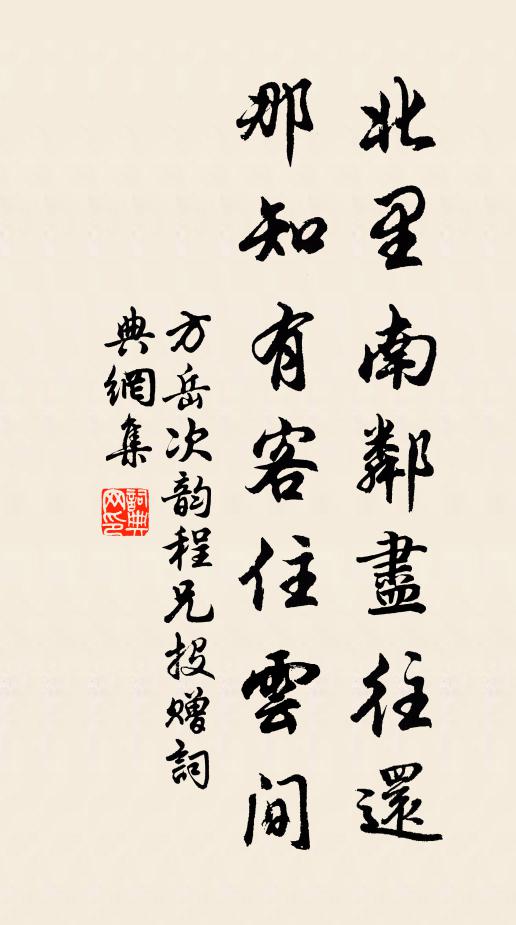 北里南鄰盡往還
那知有客住雲間
方岳次韵程兄投赠詞
典網集
詞典网印